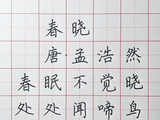 春晓
唐·孟浩然
春眠不觉晓
处处闻啼鸟